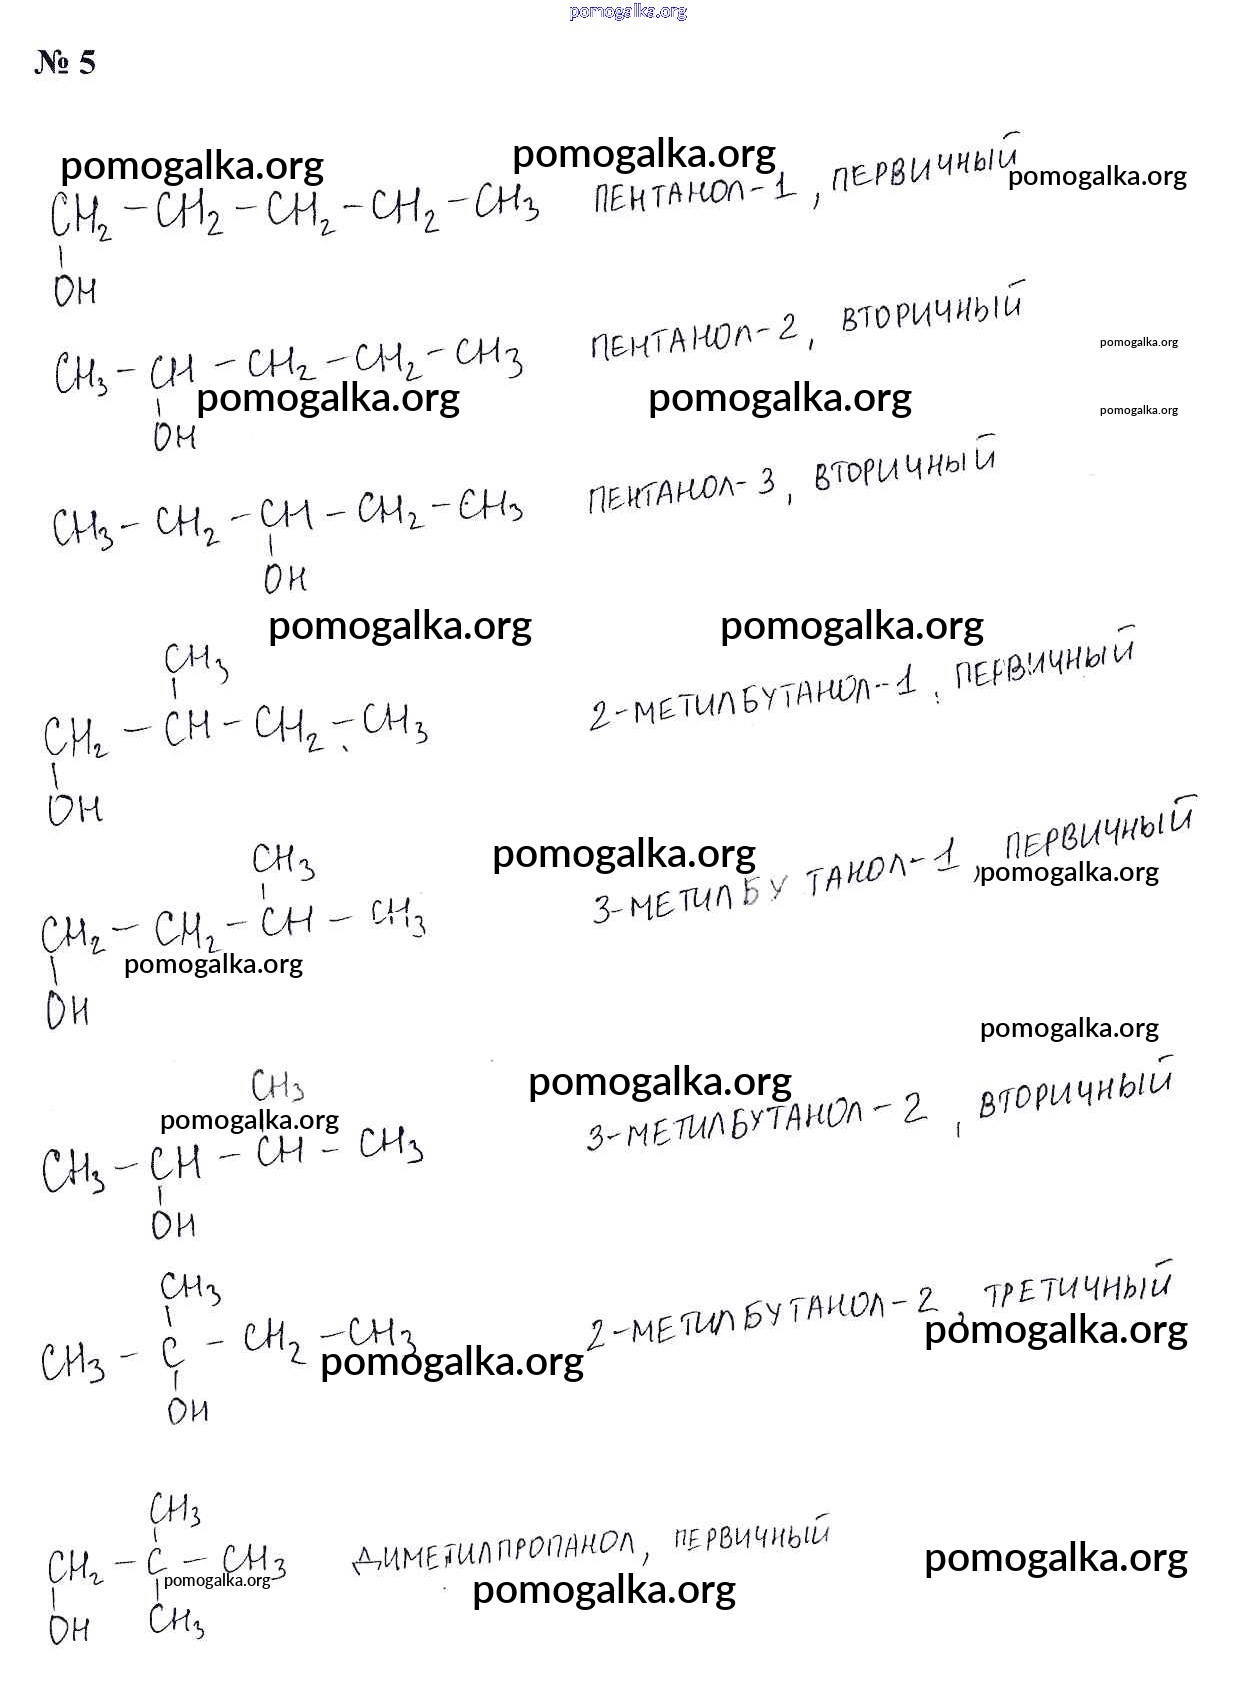 pomogalka.org
№ 5
pomogalka.org pomogalka.org pomogalka.org
CH2 – CH2 – CH2 – CH2 – CH3 ПЕНТАНОЛ-1, ПЕРВИЧНЫЙ
OH
CH3 – CH – CH2 – CH2 – CH3 ПЕНТАНОЛ-2, ВТОРИЧНЫЙ
pomogalka.org
pomogalka.org pomogalka.org pomogalka.org
OH
CH3 – CH2 – CH – CH2 – CH3 ПЕНТАНОЛ-3, ВТОРИЧНЫЙ
OH
pomogalka.org pomogalka.org
CH3
CH2 – CH – CH2 – CH3 2-МЕТИЛБУТАНОЛ-1, ПЕРВИЧНЫЙ
OH
pomogalka.org pomogalka.org
CH3
CH2 – CH2 – CH – CH3 3-МЕТИЛБУТАНОЛ-1, ПЕРВИЧНЫЙ
pomogalka.org
OH
pomogalka.org
pomogalka.org
CH3
pomogalka.org
CH3 – CH – CH – CH3 3-МЕТИЛБУТАНОЛ-2, ВТОРИЧНЫЙ
OH
CH3
CH3 – C – CH2 – CH3 2-МЕТИЛБУТАНОЛ-2, ТРЕТИЧНЫЙ
pomogalka.org pomogalka.org
OH
CH3
CH2 – C – CH3 ДИМЕТИЛПРОПАНОЛ, ПЕРВИЧНЫЙ
pomogalka.org pomogalka.org pomogalka.org
OH CH3